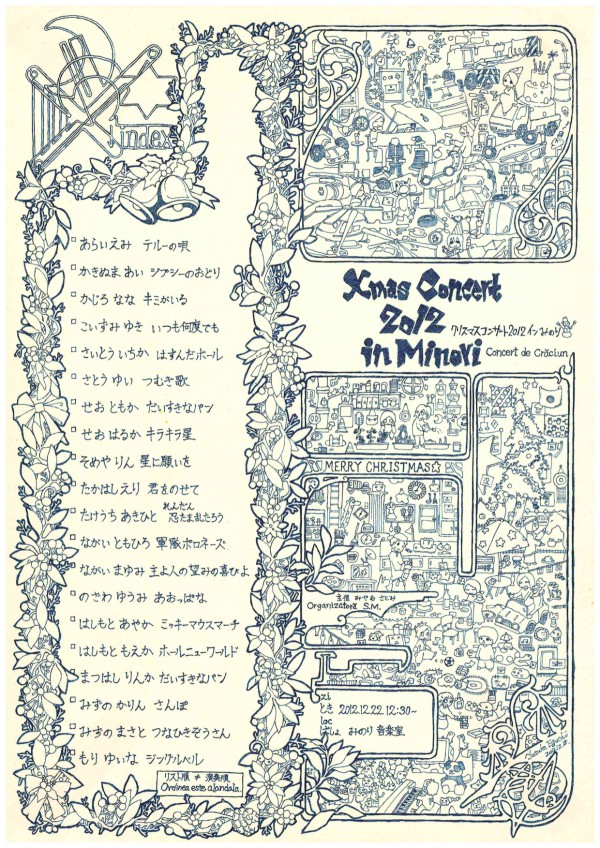 index
あらいえみ テルーの唄
かきぬま あい ジプシーのおどり
かじろ なな キミがいる
こいずみ ゆき いつも何度でも
さいとう いちか はすんだホール
さとう ゆい つむぎ歌
せお ともか だいすきなパン
せお はるか キラキラ星
そめや りん 星に願いを
たかはしえり 君をのせて
れんだん
たけうち あきひと 忍たま乱たろう
ながい ともひろ 軍隊ポロネーズ
ながい まゆみ 主よ人の望みの喜びよ
のさわ ゆうみ あおっぱな
はしもと あやか ミッキーマウスマーチ
はしもと もえか ホールニューワールド
まつはし りんか だいすきなパン
みずの かりん さんぽ
みずの まさと つなひきぞうさん
もり ゆいな ジングルベル
リスト順 ≠ 演奏順
Ordinea este alandala.
Xmas Concert
2012
クリスマスコンサート2012インみのり
in Minori
Concert de Crăciun
MERRY CHRISTMAS☆
主催 みせお さとみ
Organizatoră S.M.
zi
とき 2012.12.22 12:30~
loc
ばしょ みのり 音楽室